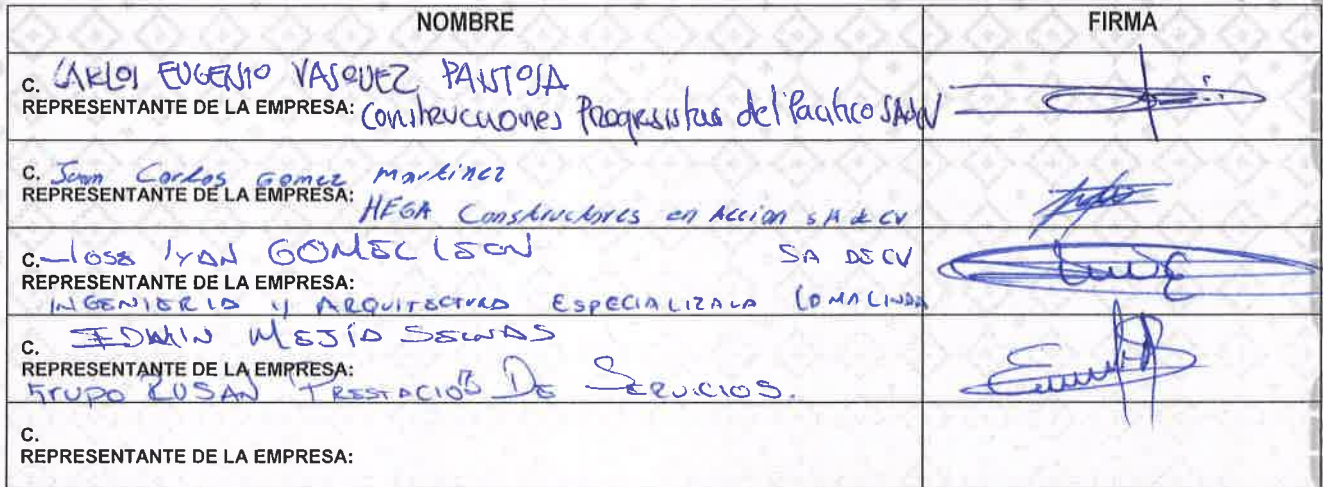 NOMBRE FIRMA
C. CARLOS EUGENIO VASQUEZ PANTOJA
REPRESENTANTE DE LA EMPRESA: Construcciones Progresistas del Pacifico SA de CV
C. Juan Carlos Gomez Martinez
REPRESENTANTE DE LA EMPRESA: HEGA Constructores en Accion SA de CV
C. Jose IVAN GOMEZ LEON SA DE CV
REPRESENTANTE DE LA EMPRESA:
INGENIERIA Y ARQUITECTURA ESPECIALIZADA LOMALINDA
C. EDWIN MEJÍA
REPRESENTANTE DE LA EMPRESA:
Grupo RUSAN PRESTACION DE SERVICIOS.
C.
REPRESENTANTE DE LA EMPRESA: